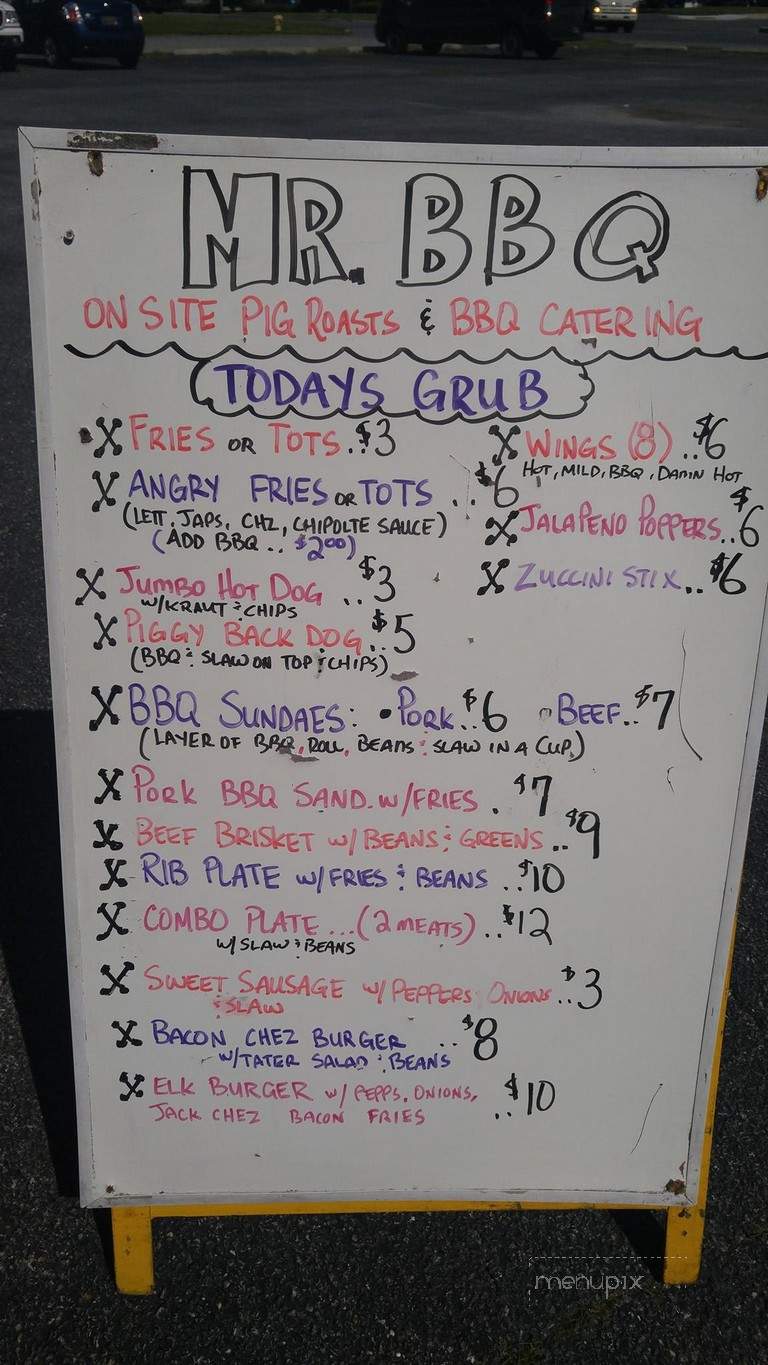 MR. BBQ
ON SITE PIG ROASTS & BBQ CATERING
TODAYS GRUB
FRIES OR TOTS..$3
ANGRY FRIES OR TOTS ..$6
(LETT, JAPS, CHZ, CHIPOLTE SAUCE)
(ADD BBQ.. $2.00)
JUMBO HOT DOG ..$3
W/KRAUT & CHIPS
PIGGY BACK DOG..$5
(BBQ & SLAW ON TOP & CHIPS)
WINGS (8)..$6
HOT, MILD, BBQ, DAMN HOT
JALAPENO POPPERS..$6
ZUCCINI STIX..$6
BBQ SUNDAES: •PORK..$6 •BEEF..$7
(LAYER OF BBQ, ROLL, BEANS & SLAW IN A CUP)
PORK BBQ SAND. W/FRIES . $7
BEEF BRISKET W/BEANS & GREENS ..$9
RIB PLATE W/FRIES & BEANS ..$10
COMBO PLATE...(2 MEATS)..$12
W/SLAW & BEANS
SWEET SAUSAGE W/PEPPERS ONIONS..$3
& SLAW
BACON CHEZ BURGER ..$8
W/TATER SALAD & BEANS
ELK BURGER W/ PEPPS, ONIONS,
JACK CHEZ BACON FRIES ..$10
menupix